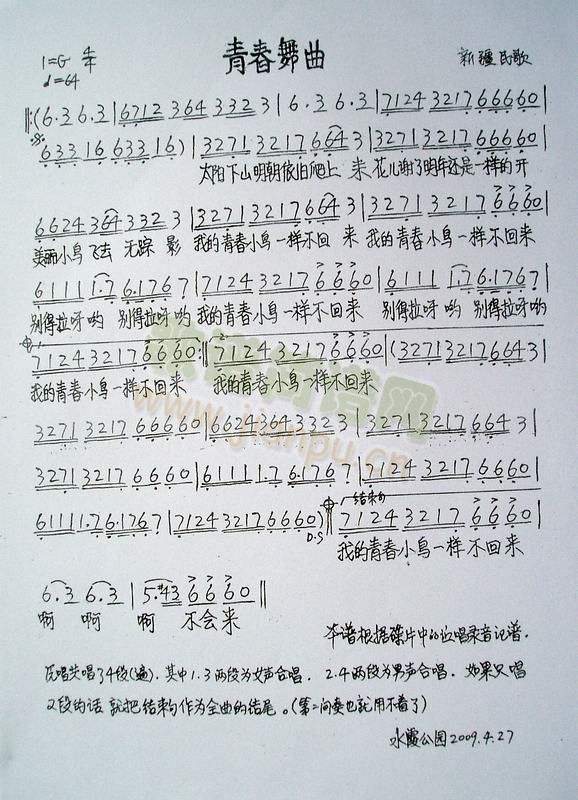 青春舞曲
1=G 4/4
新疆民歌
♩=64
‖:(6.3 6.3|6712 364 332 3|6.3 6.3|7124 3217 66660|
633 16 633 16)|3271 3217 664 3|3271 3217 66660|
太阳下山明朝依旧爬上 来 花儿谢了明年还是一样的开
6624 364 332 3|3271 3217 664 3|3271 3217 6660|
美丽小鸟飞去 无踪 影 我的青春小鸟一样不回 来 我的青春小鸟一样不回来
6111 1.7 6.176 7|7124 3217 6660|6111 1.7 6.176 7|
别得拉呀哟 别得拉呀哟 我的青春小鸟一样不回来 别得拉呀哟 别得拉呀哟
7124 3217 6660:‖7124 3217 6660|(3271 3217 664 3|
我的青春小鸟一样不回来 我的青春小鸟一样不回来
3271 3217 66660|6624 364 332 3|3271 3217 664 3|
3271 3217 6660|6111 1.7 6.176 7|7124 3217 66660|
6111 1.7 6.176 7|7124 3217 6660)‖7124 3217 6660|
结束句
D.S
我的青春小鸟一样不回来
6.3 6.3|5.#43 6660‖
啊 啊 啊 不会来
本谱根据碟片中的演唱录音记谱.
演唱共唱了4段(遍).其中1.3两段为女声合唱.2.4两段为男声合唱.如果只唱
2段的话 就把结束句作为全曲的结尾。(第二间奏也就用不着了)
水霞公园2009.4.27
www.jianpu.cn